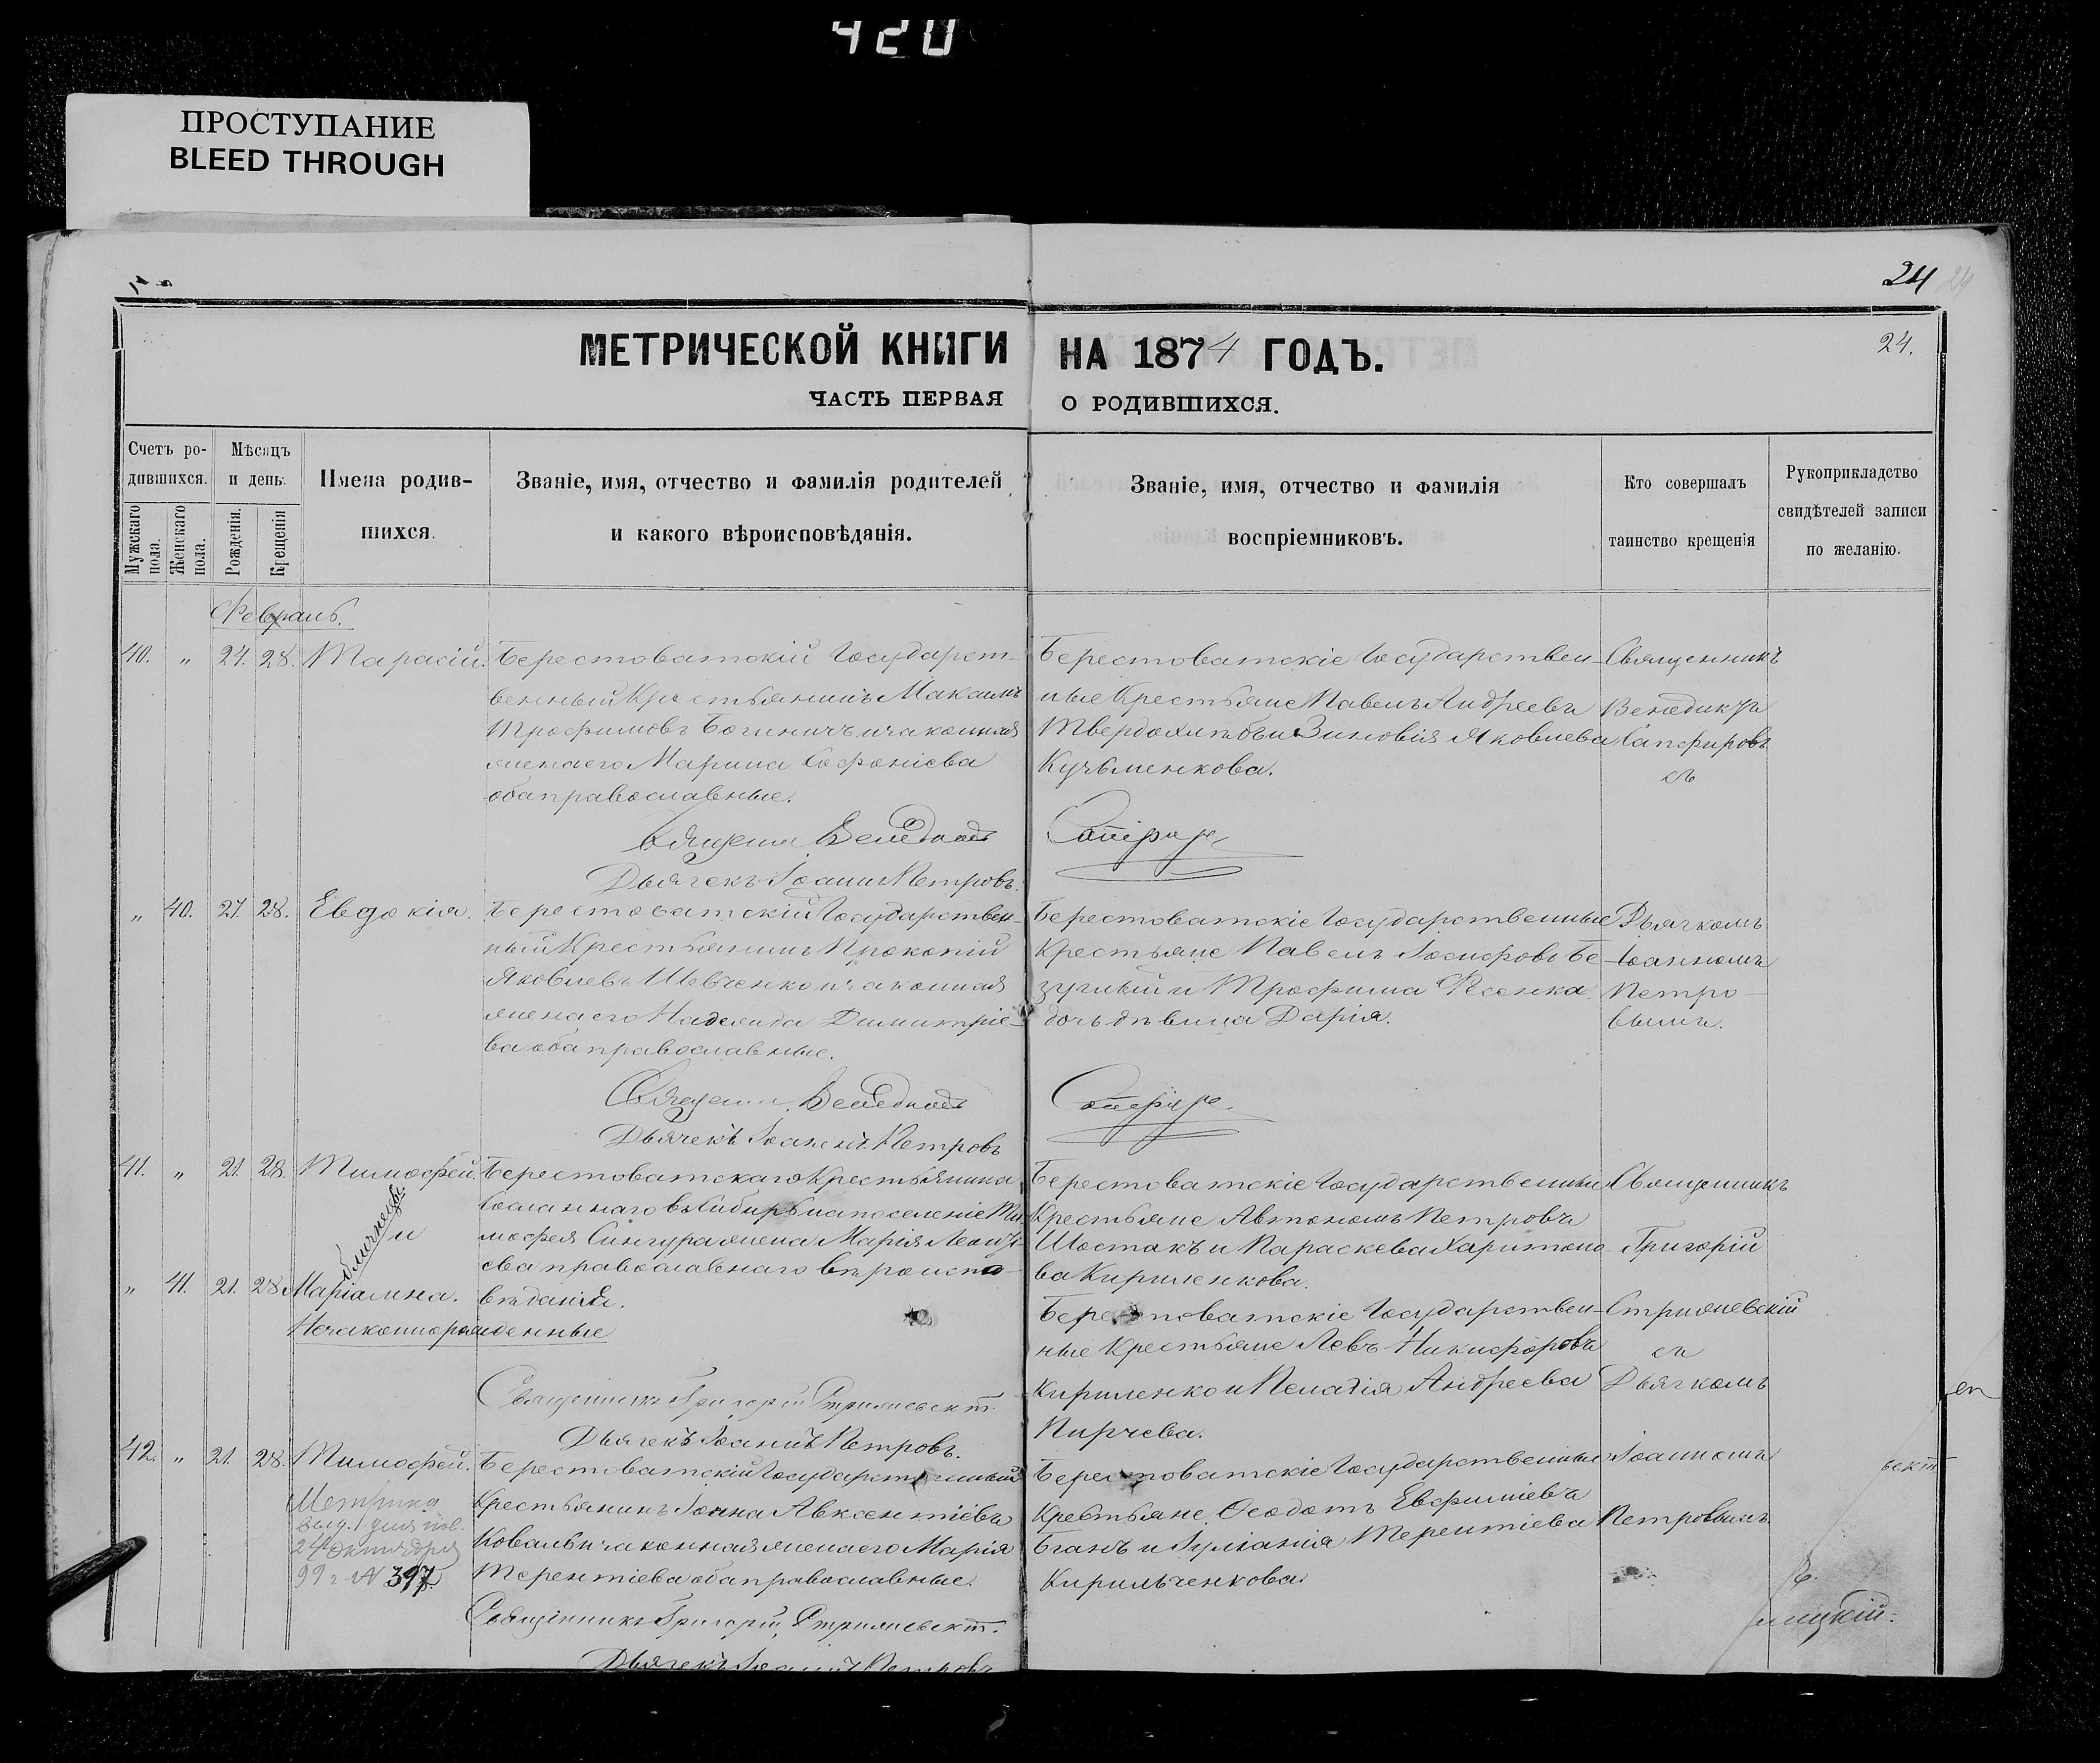 420
ПРОСТУПАНИЕ
BLEED THROUGH
24
24.
МЕТРИЧЕСКОЙ КНИГИ НА 1874 ГОДЪ.
ЧАСТЬ ПЕРВАЯ О РОДИВШИХСЯ.
Счетъ родившихся.
Мужскаго пола.
Женскаго пола.
Мѣсяцъ и день.
Рожденія.
Крещенія
Имена родившихся.
Званіе, имя, отчество и фамилія родителей
и какого вѣроисповѣданія.
Званіе, имя, отчество и фамилія
воспріемниковъ.
Кто совершалъ
таинство крещенія
Рукоприкладство
свидѣтелей записи
по желанію.
Февраль.
40. " 24. 28. Тарасій.
Берестоватскій Государст-
венный Крестьянинъ Максимъ
Трофимовъ и законная
жена его Марина Софоніева
оба православные.
Берестоватскіе Государствен-
ные Крестьяне Павелъ Андреевъ
Твердохлѣбъ и Зиновія Яковлева
Кузьменкова.
Священникъ
Венедиктъ
Сапфировъ
съ
Дьячекъ Іоаннъ Петровъ.
" 40. 27. 28. Евдокія.
Берестоватскій Государствен-
ный Крестьянинъ Прокопій
Яковлевъ Шевченко и законная
жена его Надежда Димитріе-
ва оба православные.
Берестоватскіе Государственные
Крестьяне Павелъ Іосифовъ Бе-
зуглый и Трофима Фесенка
дочь дѣвица Дарія.
Дьячкомъ
Іоанномъ
Петро-
вымъ.
Дьячекъ Іоаннъ Петровъ
41. " 21. 28. Тимофей
близнецы
и
" 41. 21. 28. Маріамна.
Незаконнорожденные
Берестоватскаго Крестьянина
сосланнаго въ Сибирь на поселеніе Ти-
мофея жена Марія Леонть-
ева православнаго вѣроиспо-
вѣданія.
Берестоватскіе Государственные
Крестьяне Автономъ Петровъ
Шостакъ и Параскева Харитоно-
ва Кириленкова.
Берестоватскіе Государствен-
ные Крестьяне Левъ Никифоровъ
Кириленко и Пелагія Андреева
Священникъ
Григорій
Стрижевскій
съ
Дьячкомъ
Іоанномъ
Петровымъ
Священникъ Григорій Стрижевскій.
Дьячекъ Іоаннъ Петровъ.
42. " 21. 28. Тимофей.
Метрика
24 октября
99 г. № 397
Берестоватскій Государственный
Крестьянинъ Іоанна Авксентіевъ
Коваль и законная жена его Марія
Терентіева оба православные.
Берестоватскіе Государственные
Крестьяне Ѳеодотъ Евфиміевъ
и Іуліанія Терентіева
Кирильченкова.
Священникъ Григорій Стрижевскій.
Дьячекъ Іоаннъ Петровъ